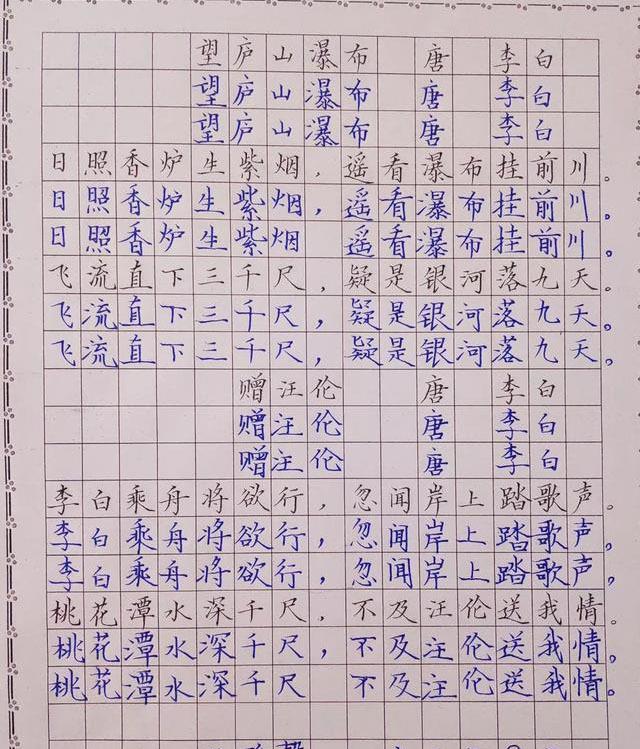 望庐山瀑布 唐 李白
望庐山瀑布 唐 李白
望庐山瀑布 唐 李白
日照香炉生紫烟，遥看瀑布挂前川。
日照香炉生紫烟，遥看瀑布挂前川。
日照香炉生紫烟 遥看瀑布挂前川。
飞流直下三千尺，疑是银河落九天。
飞流直下三千尺，疑是银河落九天。
飞流直下三千尺，疑是银河落九天。
赠汪伦 唐 李白
赠汪伦 唐 李白
赠汪伦 唐 李白
李白乘舟将欲行，忽闻岸上踏歌声。
李白乘舟将欲行，忽闻岸上踏歌声，
李白乘舟将欲行，忽闻岸上踏歌声，
桃花潭水深千尺，不及汪伦送我情。
桃花潭水深千尺，不及汪伦送我情。
桃花潭水深千尺 不及汪伦送我情。